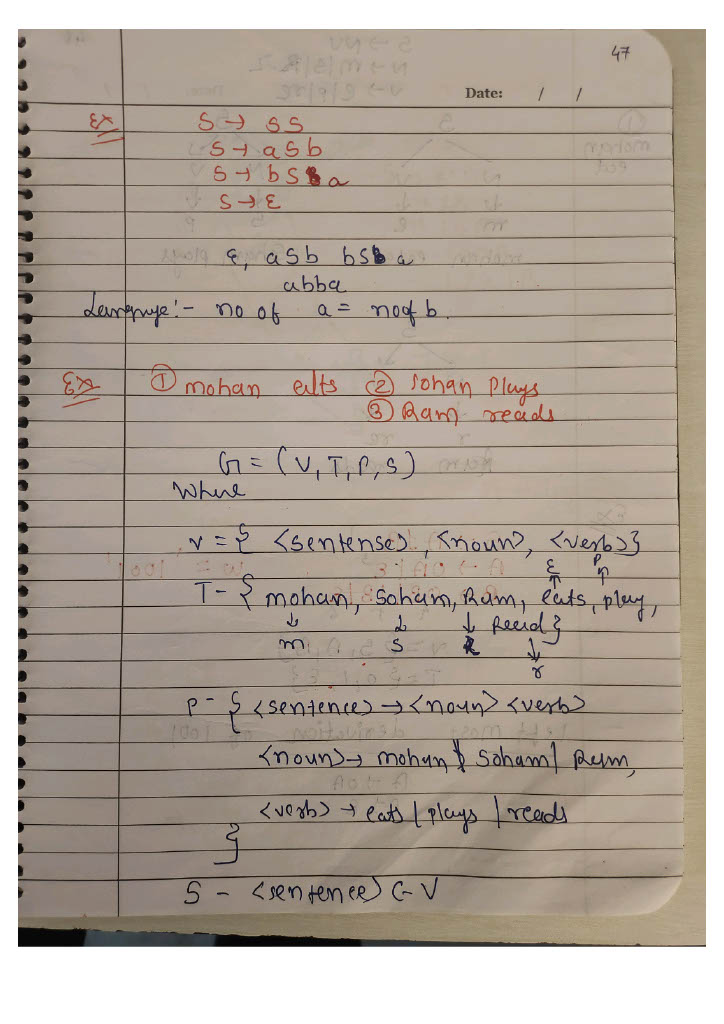 47
Date: / /
Ex S → SS
S → aSb
S → bSa
S → ε
ε, aSb bSa
abba
Language:- no of a = no of b.
Ex ① mohan eats ② Sohan Plays
③ Ram reads
G = (V, T, P, S)
Where
V = { <sentense>, <noun>, <verb>}
ε P
T - { mohan, Soham, Ram, eats, play,
↓ ↓ ↓ Read}
m s R ↓
r
P - { <sentence> → <noun> <verb>
<noun> → mohan | Soham | Ram,
<verb> → eats | plays | reads
}
S - <sentence> ∈ V